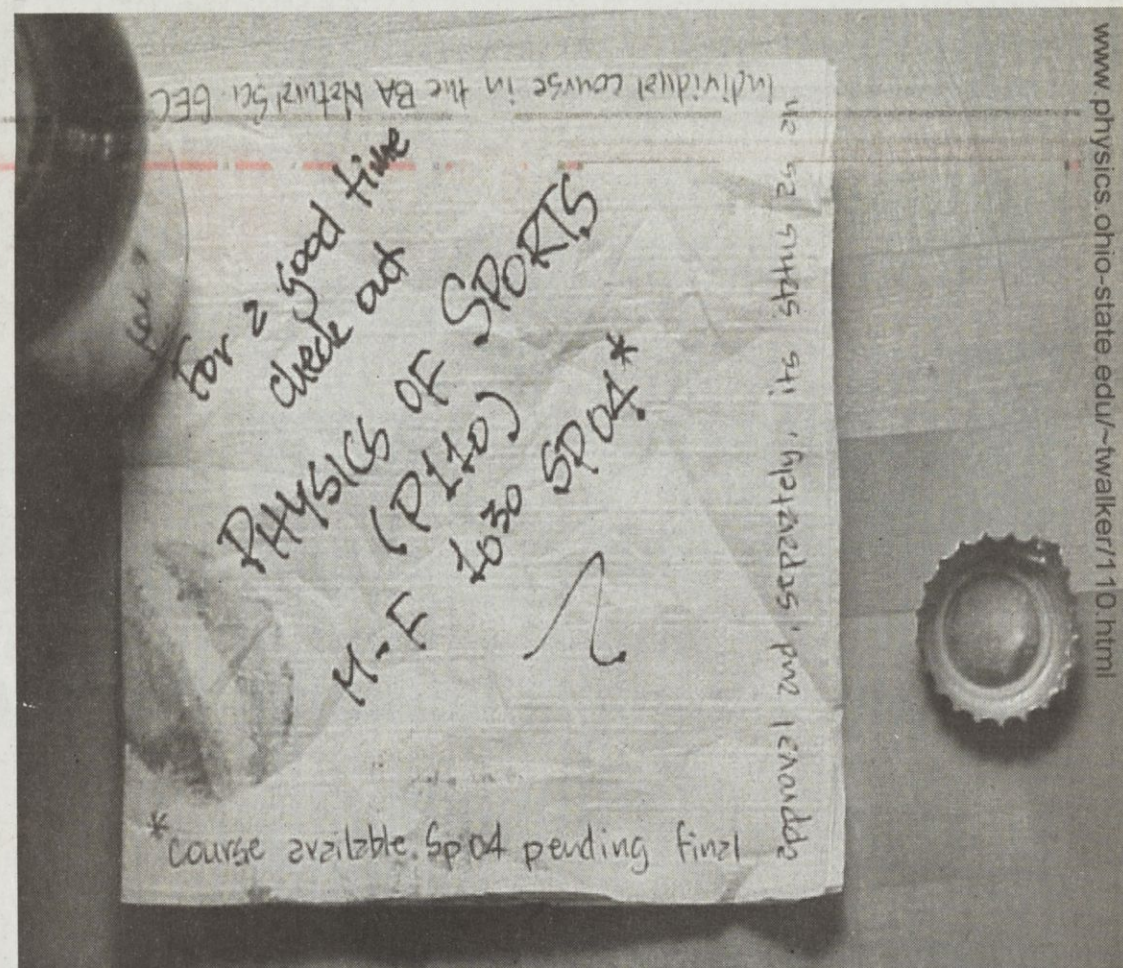 For a good time
check out
PHYSICS OF SPORTS
(P110)
M-F 1030 SP04*
*course available Sp04 pending final
approval and, separately, its status as an
individual course in the BA Natural Sci GEC
www.physics.ohio-state.edu/~twalker/110.html